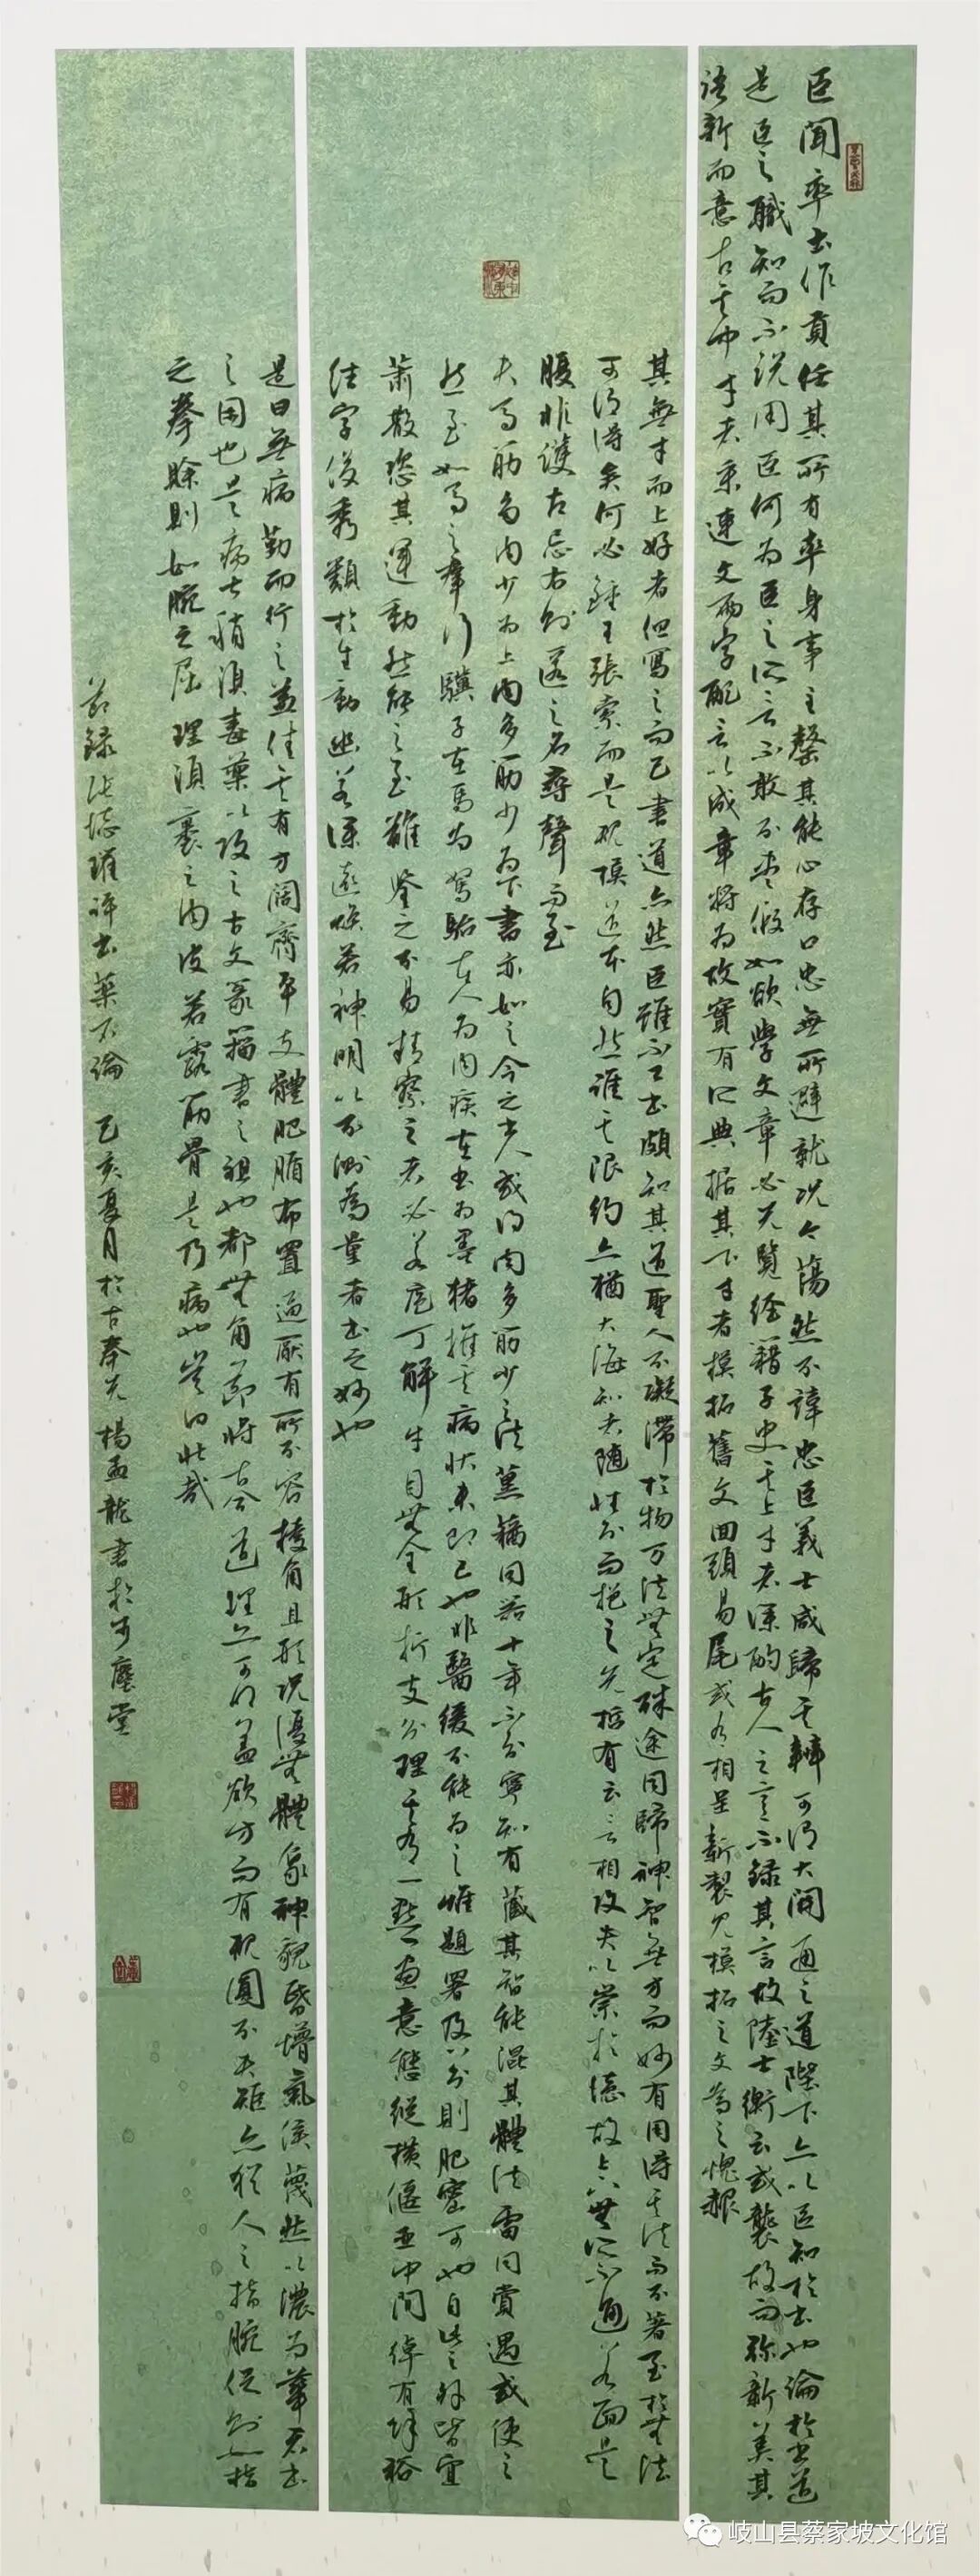 臣聞率土作貢任其所有率身事主罄其能心存口忠無所避就况今蕩然不諱忠臣義士咸歸其轉可謂大開通之道陛下亦以臣知於書也論於書道
是臣之職知而不説用臣何为臣之所言不敢不盡假如欲學文章必先覽經籍子史其上才者深酌古人之意不録其言故陸士衡云或襲故而弥新美其
語新而意古其中才者采連文兩字配言以成章將为故實有所典据其下才者模拓舊文回頭易尾或有相呈新製見模拓之文為之愧赧
其無才而上好者但寫之而已書道亦然臣雖不工書頗知其道聖人不凝滯於物万法無定殊途同歸神智無方而妙有用得其法而不著至於無法
可謂得矣何必鍾王張索而是規模道本自然誰其限約亦猶大海知者随性分而挹之先哲有云言相攻失以崇於德故上下無所不通若面是
腹非護左忌右則匿之名尋聲而至
夫馬筋多肉少为上肉多筋少为下書亦如之今之書人或得肉多筋少之法薰蕕同器十年不分寧知有藏其智能混其體法雷同賞遇或使之
然至如馬之羣行驥子在焉为駑駘在人为肉疾在書为墨猪推其病狀未即已也非醫緩不能为之惟題署及八分則肥密可也自此之外皆宜
蕭散恣其運動然能之至難鉴之不易精察之者必若庖丁解牛目無全形析支分理其有一點一画意態縱横偃亞中間倬有餘裕
结字俊秀類於生動幽若深遠焕若神明以不測為量者書之妙也
是曰無病勤而行之益佳其有方闊齊平支體肥腯布置逼厭有所不容棱角且形况復無體象神貌昏懵氣候蔑然以濃为華者書
之困也是病甚稍須毒藥以攻之古文篆籀書之祖也都無角節將古今道理亦可明盖欲方而有規圓不失矩亦猶人之指腕促則如指
之拳賒則如腕之屈理須裹之内皮若露筋骨是乃病也豈曰壯哉
节録張懷瓘評書藥石論　己亥夏月於古秦川楊孟龍書於可塵堂
岐山县蔡家坡文化馆